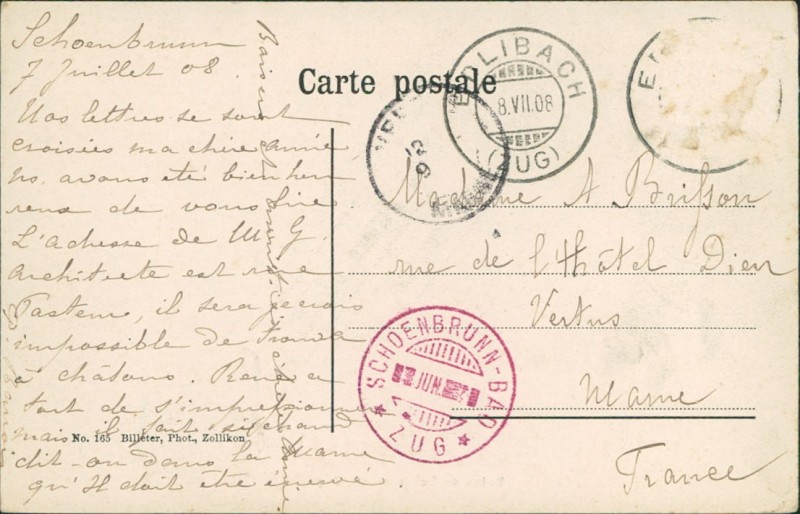 Schoenbrunn
7 Juillet 08
Nos lettres se sont
croisées ma chère année,
ns. avons été bien heu
reux de vous lire
L'adresse de M G.
architecte est rue
Pasteur, il sera je crois
impossible de trouver
à châlons. René a
tort de s'impressionner
mais il fait si chaud
dit-on dans la Marne
qu'il doit être énervé.
Carte postale
EDLIBACH
8.VII.08
(ZUG)
Madame A Brisson
rue de l'Hôtel Dieu
Vertus
Marne
France
SCHOENBRUNN-BAD
JUN.
ZUG
No. 165 Billeter, Phot., Zollikon